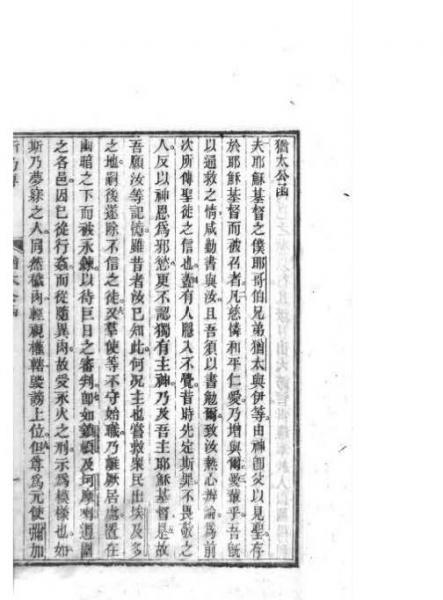 猶太公函
夫耶穌基督之僕耶哥伯兄弟猶太與伊等由神卽父以見聖存
於耶穌基督而被召者凡慈憐和平仁愛乃增與爾曹輩乎吾旣
以通救之情咸勤書與汝且吾須以書勉爾致汝熱心辨論爲前
次所傳聖徒之信也蓋有人隱入不覺昔時先定斯罪不畏敬之
人反以神恩爲邪慾更不認獨有主神乃及吾主耶穌基督是故
吾願汝等記憶雖昔者汝已知此何況主也嘗救衆民出埃及多
之地嗣後還除不信之徒又羣使等不守始職乃離厥居處置在
幽暗之下而被永鍊以待巨日之審判卽如及坷摩
之各邑因已從行姦而從隨異肉故受永火之刑示爲模樣也如
斯乃夢寐之人同然穢肉輕視權轄謗上位但尊爲元使彌加